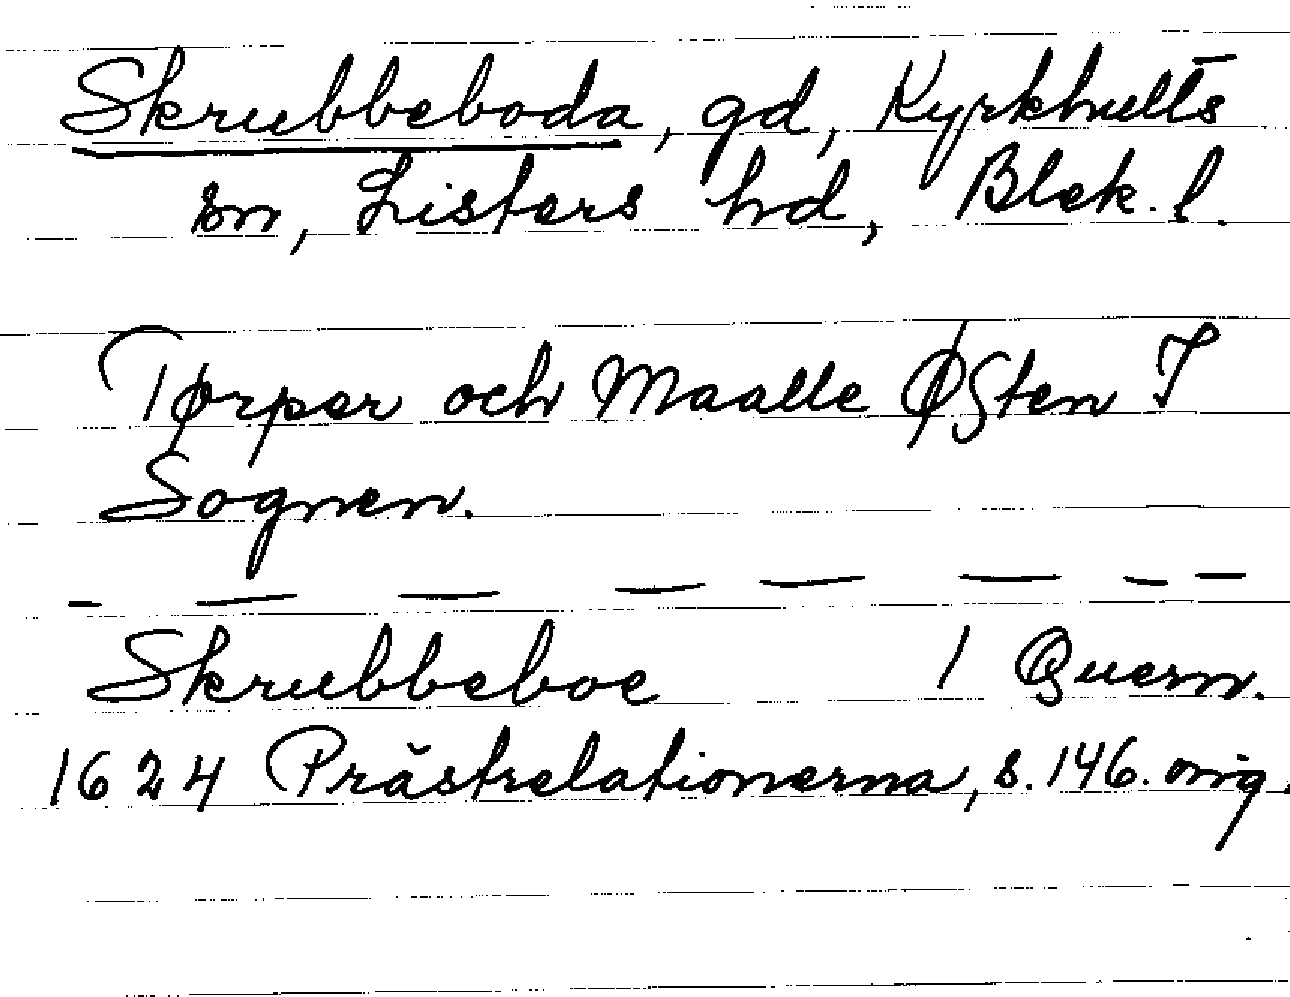 Skrubbeboda, gd, Kyrkhults
sn, Listers hd, Blek. l.
Tørper och Maalle Østen I
Sognen.
— — — — — — — —
Skrubbeboe 1 Quern.
1624 Prästrelationerna, s. 146. orig.